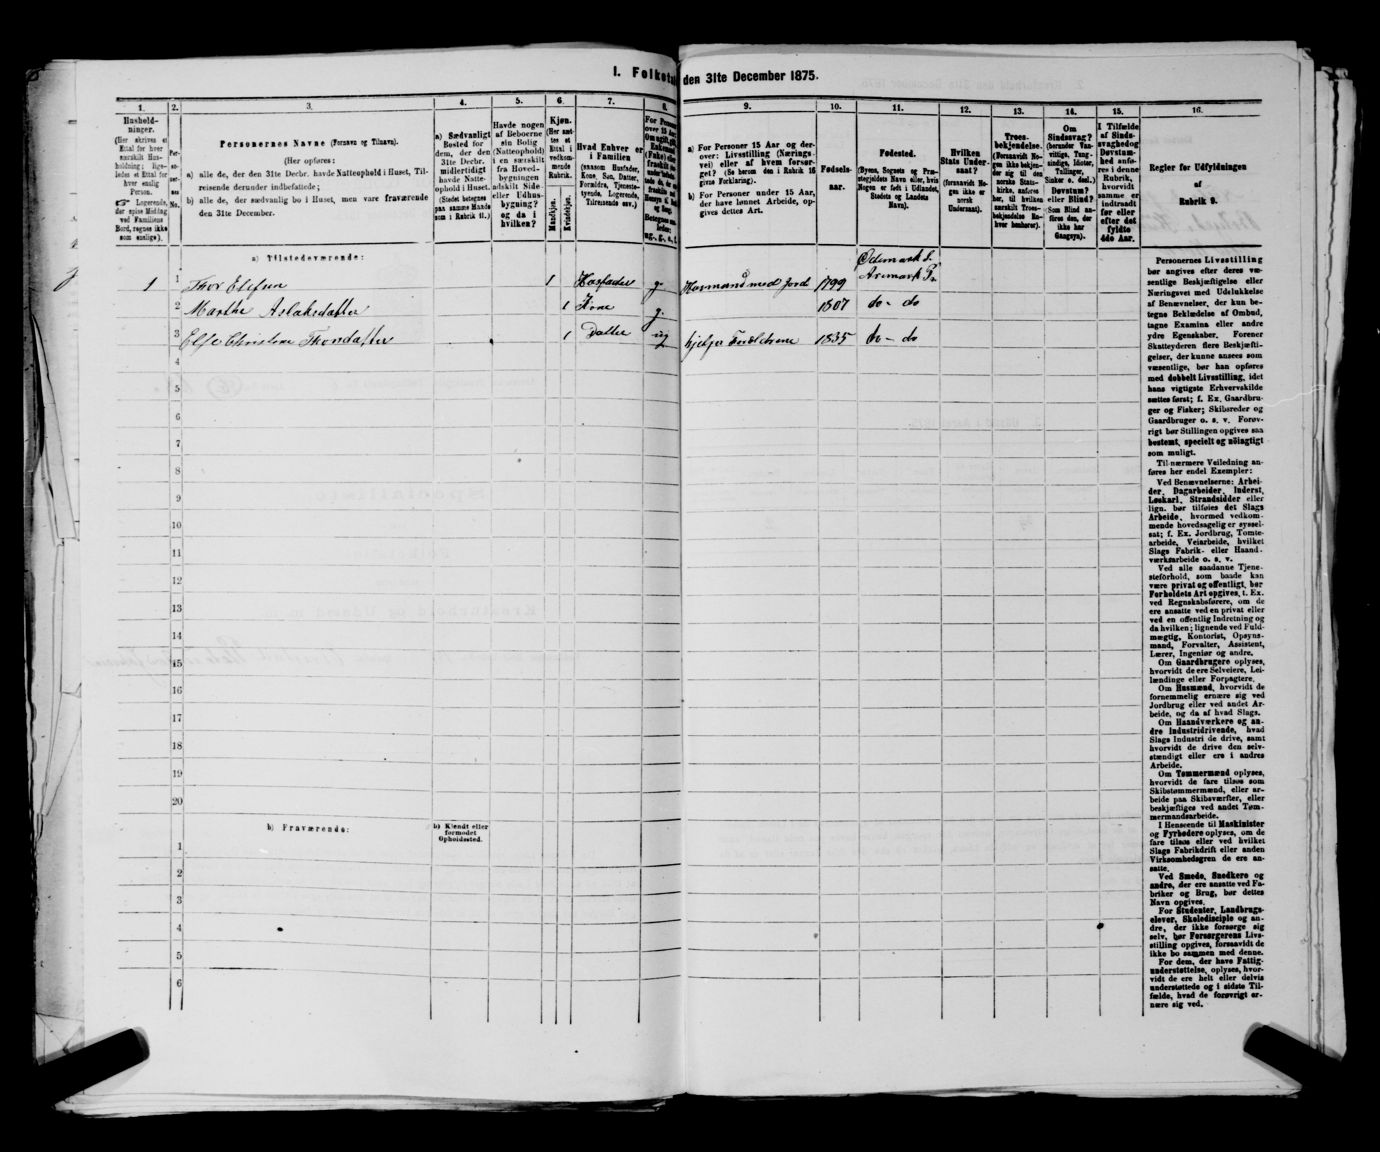 I. Folketæ
den 31te December 1875.
1.
2.
3.
4.
5.
6.
7.
8.
9.
10.
11.
12.
13.
14.
15.
16.
Hushold-
ninger.
(Her skrives et
Ettal for hver
særskilt Hus-
holdning; lige-
ledes et Ettal for
hver enslig
Person.
☞ Logerende,
der spise Middag
ved Familiens
Bord, regnes ikke
som enslige).
Per-
so-
ner-
nes
No.
Personernes Navne (Fornavn og Tilnavn).
(Her opføres:
a) alle de, der den 31te Decbr. havde Natteophold i Huset, Til-
reisende derunder indbefattede;
b) alle de, der sædvanlig bo i Huset, men vare fraværende
den 31te December.
a) Sædvanligt
Bosted for
dem, der den
31te Decbr.
midlertidigt
havde Natte-
ophold i Huset.
(Stedet betegnes
paa samme Maade
som i Rubrik 11.)
Havde nogen
af Beboerne
sin Bolig
(Natteophold)
i en særskilt
fra Hoved-
bygningen
adskilt Side-
eller Udhus-
bygning?
og da i
hvilken?
Kjøn.
(Her sæt-
tes et
Ettal i
vedkom-
mende
Rubrik.
Mandkjøn.
Kvindekjøn.
Hvad Enhver er
i Familien
(saasom Husfader,
Kone, Søn, Datter,
Forældre, Tjeneste-
tyende, Logerende,
Tilreisende osv.)
a) For Personer 15 Aar og der-
over: Livsstilling (Nærings-
vei) eller af hvem forsør-
get? (Se herom den i Rubrik 16
givne Forklaring).
b) For Personer under 15 Aar,
der have lønnet Arbeide, op-
gives dettes Art.
Fødsels-
aar.
Fødested.
(Byens, Sognets og Præ-
stegjeldets Navn eller, hvis
Nogen er født i Udlandet,
Stedets og Landets
Navn).
Hvilken
Stats Under-
saat?
(forsaavidt No-
gen ikke er
norsk
Undersaat).
Troes-
bekjendelse.
(Forsaavidt No-
gen ikke bekjen-
der sig til den
norske Stats-
kirke, anføres
her, til hvilken
særskilt Troes-
bekjendelse En-
hver henhører).
Om
Sindssvag?
(herunder Van-
vittige, Tung-
sindige, Idioter,
Tullinger,
Sinker o. desl.)
Døvstum?
eller Blind?
Som Blind an-
føres den, der
ikke har
Gangsyn).
I Tilfælde
af Sinds-
svaghed og
Døvstum-
hed anfø-
res i denne
Rubrik,
hvorvidt
samme er
indtraadt
før eller
efter det
fyldte
4de Aar.
Regler for Udfyldningen
af
Rubrik 9.
a) Tilstedeværende:
1 1 Thor Elefsen 1 Husfader g Husmand med Jord 1799 Ødemark S. Aremark Pr.
2 Marthe Aslaksdatter 1 Kone g. 1807 do - do
3 Else Christine Thorsdatter 1 Datter ug hjelper Forældrene 1835 do - do
4
5
6
7
8
9
10
11
12
13
14
15
16
17
18
19
20
b) Fraværende:
b) Kjendt eller
formodet
Opholdssted.
1
2
3
4
5
6
Personernes Livsstilling
bør angives efter deres væ-
sentlige Beskjæftigelse eller
Næringsvei med Udelukkelse
af Benævnelser, der kun be-
tegne Beklædelse af Ombud,
tagne Examina eller andre
ydre Egenskaber. Forener
Skatteyderen flere Beskjæfti-
gelser, der kunne ansees som
væsentlige, bør han opføres
med dobbelt Livsstilling, idet
hans vigtigste Erhvervskilde
sættes først; f. Ex. Gaardbru-
ger og Fisker; Skibsreder og
Gaardbruger o. s. v. Forøv-
rigt bør Stillingen opgives saa
bestemt, specielt og nöiagtigt
som muligt.
Til nærmere Veiledning an-
føres her endel Exempler:
Ved Benævnelserne: Arbei-
der, Dagarbeider, Inderst,
Løskarl, Strandsidder eller
lign. bør tilføies det Slags
Arbeide, hvormed vedkom-
mende hovedsagelig er syssel-
sat; f. Ex. Jordbrug, Tomte-
arbeide, Veiarbeide, hvilket
Slags Fabrik- eller Haand-
værksarbeide o. s. v.
Ved alle saadanne Tjene-
steforhold, som baade kan
være privat og offentligt, bør
Forholdets Art opgives, t. Ex.
ved Regnskabsførere, om de
ere ansatte ved en privat eller
ved en offentlig Indretning og
da hvilken; lignende ved Fuld-
mægtig, Kontorist, Opsyns-
mand, Forvalter, Assistent,
Lærer, Ingeniør og andre.
Om Gaardbrugere oplyses,
hvorvidt de ere Selveiere, Lei-
lændinge eller Forpagtere.
Om Husmænd, hvorvidt de
fornemmelig ernære sig ved
Jordbrug eller ved andet Ar-
beide, og da af hvad Slags.
Om Haandværkere og an-
dre Industridrivende, hvad
Slags Industri de drive, samt
hvorvidt de drive den selv-
stændigt eller ere i andres
Arbeide.
Om Tømmermænd oplyses,
hvorvidt de fare tilsøs som
Skibstømmermænd, eller ar-
beide paa Skibsværfter, eller
beskjæftiges ved andet Tøm-
mermandsarbeide.
I Henseende til Maskinister
og Fyrbødere oplyses, om de
fare tilsøs eller ved hvilket
Slags Fabrikdrift eller anden
Virksomhedsgren de ere an-
satte.
Ved Smede, Snedkere og
andre, der ere ansatte ved Fa-
briker og Brug, bør dettes
Navn opgives.
For Studenter, Landbrugs-
elever, Skoledisciple og an-
dre, der ikke forsørge sig
selv, bør Forsørgerens Livs-
stilling opgives, forsaavidt de
ikke bo sammen med denne.
For dem, der have Fattig-
understøttelse, oplyses, hvor-
vidt de ere helt eller delvis
understøttede og i sidste Til-
fælde, hvad de forøvrigt er-
nære sig ved.